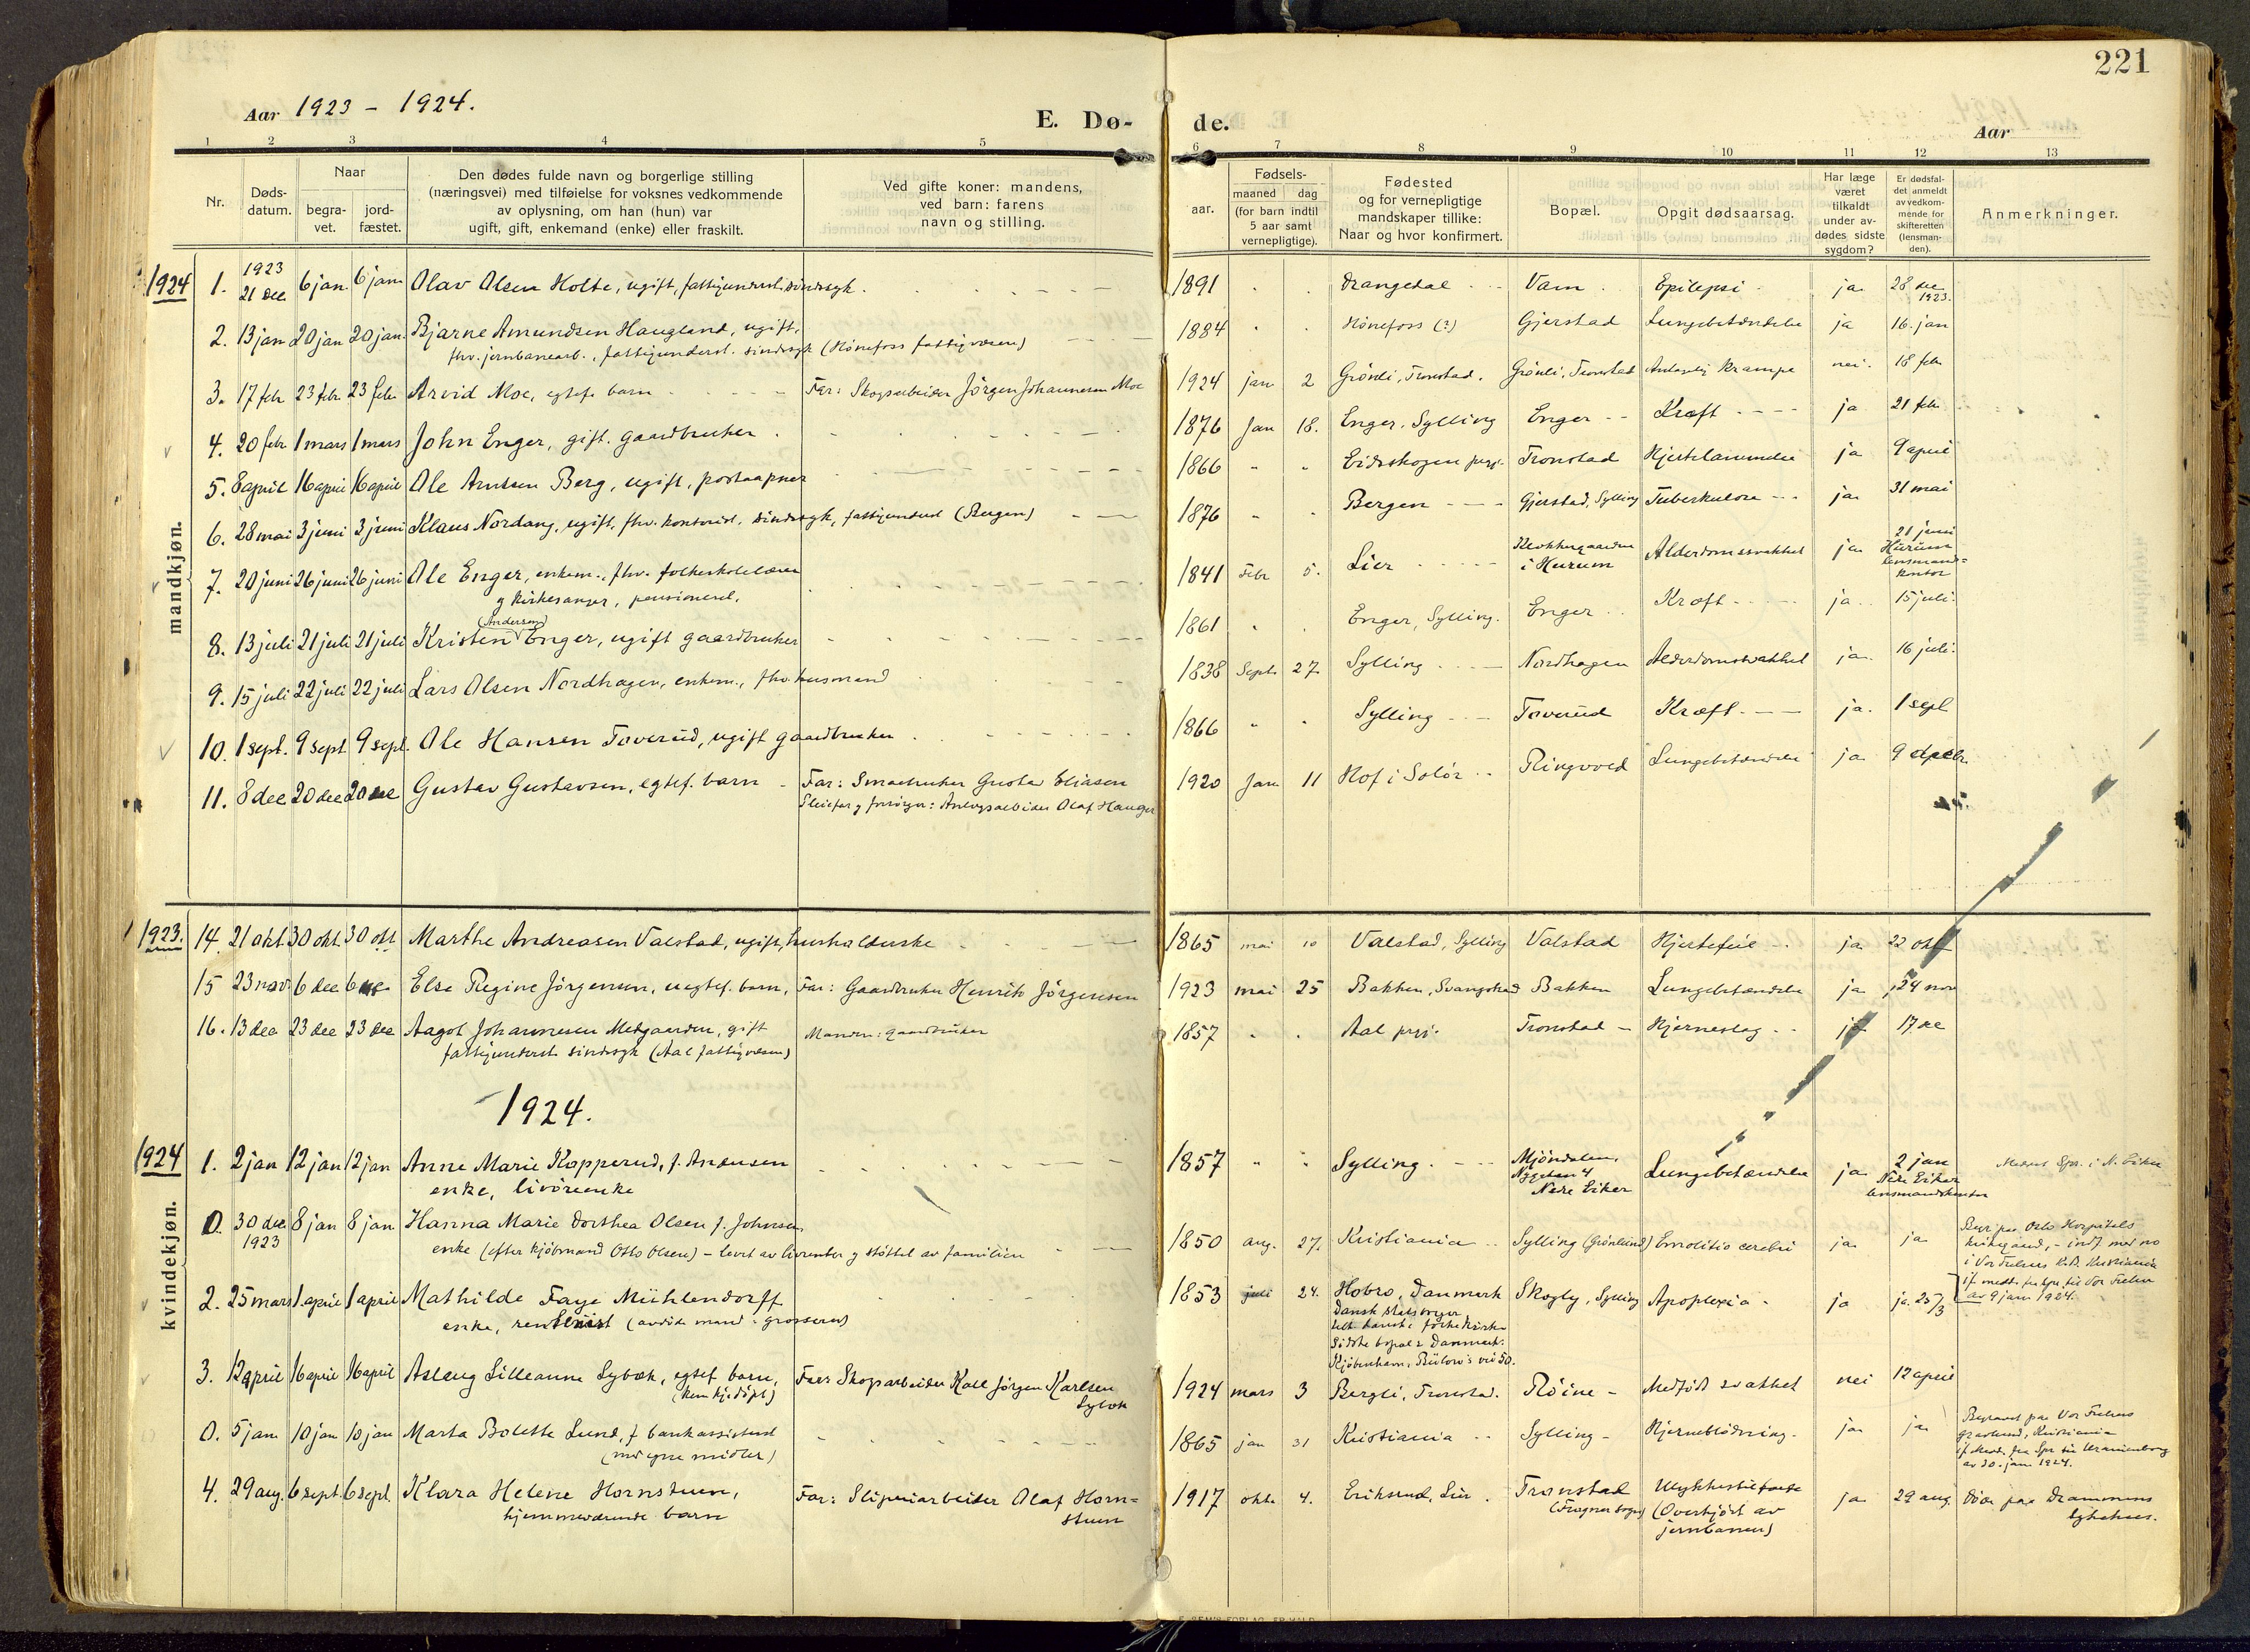 221
Aar 1923 - 1924.
E. Dø-
de.
Aar
1 2 3 4 5 6 7 8 9 10 11 12 13
Nr.
Døds-
datum.
Naar
begra-
vet.
jord-
fæstet.
Den dødes fulde navn og borgerlige stilling
(næringsvei) med tilføielse for voksnes vedkommende
av oplysning, om han (hun) var
ugift, gift, enkemand (enke) eller fraskilt.
Ved gifte koner: mandens,
ved barn: farens
navn og stilling.
Fødsels-
aar.
maaned dag
(for barn indtil
5 aar samt
vernepligtige).
Fødested
og for vernepligtige
mandskaper tillike:
Naar og hvor konfirmert.
Bopæl.
Opgit dødsaarsag.
Har læge
været
tilkaldt
under av-
dødes sidste
sygdom?
Er dødsfal-
det anmeldt
av vedkom-
mende for
skifteretten
(lensman-
den).
Anmerkninger.
mandkjøn.
1924 1. 1923 21 dec 6 jan 6 jan Olav Olsen Holte, ugift, fattigunderst. sindssyk. 1891 Drangedal Vam Epilepsi ja 28 dec 1923.
2. 13 jan 20 jan 20 jan Bjarne Amundsen Haugland, ugift, 1884 Hønefoss (?) Gjerstad Lungebetændelse ja 16. jan
fhv. jernbanearb., fattigunderst. sindssyk (Hønefoss fattigvæsen)
3. 17 febr 23 febr 23 febr Arvid Moe, egtef. barn Far: Skogsarbeider Jörgen Johannesen Moe 1924 jan 2 Grönli, Tronstad. Grönli, Tronstad krampe nei. 18 febr
4. 20 febr 1 mars 1 mars John Enger, gift. gaardbruker 1876 Jan 18. Enger, Sylling Enger Kræft ja 21 febr
5. 8 april 16 april 16 april Ole Arntsen Berg, ugift, postaapner 1866 Eidskogen prgj. Tronstad Hjertelammelse ja 9 april
6. 28 mai 3 juni 3 juni Klaus Nordang, ugift, fhv. kontorist, sindssyk, fattigunderst (Bergen) 1876 Bergen Gjerstad, Sylling Tuberkulose ja 31 mai
7. 20 juni 26 juni 26 juni Ole Enger, enkem., fhv. folkeskolelærer 1841 Febr 5. Lier Klokkergaarden i Hurum Alderdomssvakhet ja 21 juni Hurum lensmands=kontor
og kirkesanger, pensioneret.
8. 13 juli 21 juli 21 juli Kristen (Andersen) Enger, ugift gaardbruker 1861 Enger, Sylling. Enger Kræft ja 15 juli.
9. 15 juli 22 juli 22 juli Lars Olsen Nordhagen, enkem., fhv. husmand 1838 Sept 27 Sylling Nordhagen Alderdomssvakhet ja. 16 juli.
10. 1 sept. 9 sept 9 sept. Ole Hansen Toverud, ugift gaardbruker 1866 Sylling Toverud Kræft ja. 1 sept
11. 8 dec 20 dec 20 dec Gustav Gustavsen, egtef. barn Far: Smaabruker Gustav Eliasen 1920 Jan 11 Hof i Solör Ringvold Lungebetændelse ja 9 decbr.
Pleiefar og forsörger: Anlegsarbeider Olaf Hauger
kvindekjøn.
1923. 14. 21 okt 30 okt 30 okt Marthe Andreasen Valstad, ugift, husholderske 1865 mai 10 Valstad, Sylling Valstad Hjertefeil ja 22 okt
15 23 nov 6 dec 6 dec Else Regine Jörgensen, uegtef. barn, Far: Gaardbruker Henrik Jörgensen 1923 mai 25 Bakken, Svangstad Bakken Lungebetændelse ja 24 nov
16. 13 dec 23 dec 23 dec Aagot Johannesen Medgaarden, gift Manden: gaardbruker 1857 Aal prgj. Tronstad Hjerneslag ja 17 dec
fattigunderst. sindssyk (Aal fattigvæsen)
1924.
1924 1. 2 jan 12 jan 12 jan Anne Marie Kopperud, f. Andersen 1857 Sylling Mjöndalen, Nygaten 4 Nedre Eiker Lungebetændelse ja 2 jan Nedre Eiker lensmandskontor i N. Eiker
enke, livöreenke
0. 30 dec 1923 8 jan 8 jan Hanna Marie Dorthea Olsen f. Johnsen 1850 aug. 27. Kristiania Sylling (Grönlund) Emolitio cerebri ja ja Begr. paa Oslo Hospitals
enke (efter kjöbmand Otto Olsen) - levet av livrenter og støttet av familien
i Vor Frelsers Kristiania
av 9 jan 1924.
2. 25 mars 1. april 1 april Mathilde Faye Mühlendorff 1853 juli 24. Hobro, Danmark Skogly, Sylling Apoplexia ja ja. 25/3
enke, rentenist (avdöde mand - grosserer)
Dansk statsborger
Sidste bopæl i Danmark:
Kjöbenhavn, Bülow's vei 50.
3. 12 april 16 april 16 april Aslaug Lilleanne Sybæk, egtef barn, Far: Skogarbeider Karl Jörgen Karlsen Sybæk 1924 mars 3 Bergli, Tronstad. Röine Medfödt svakhet nei 12 april
(hjemmedöpt)
0. 5 jan 10 jan 10 jan Marta Bolette Lund, f. bankassistent 1865 jan 31 Kristiania Sylling Hjerneblödning ja ja Begravet paa Vor Frelsers
(med egne midler)
gravlund, Kristiania
av 30. jan 1924.
4. 29 aug. 6 sept. 6 sept. Klara Helene Hornstuen, Far: Sliperiarbeider Olaf Horn=stuen 1917 okt. 4. Eriksrud, Lier Tronstad (Frogner sogn) Ulykkestilfælde (Overkjört av jernbanen) ja 29 aug. Död paa Drammens sykehus.
hjemmeværende barn